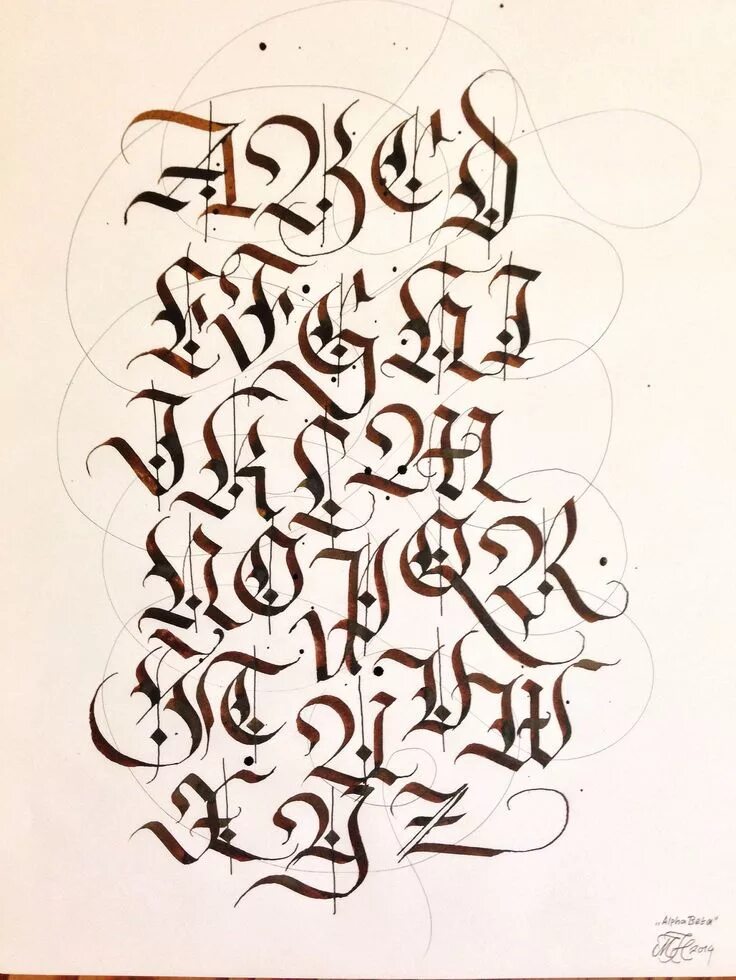 A B C D
E F G H I
J K L M
N O P Q R
S T U V W
X Y Z
„AlphaBeta"
2014